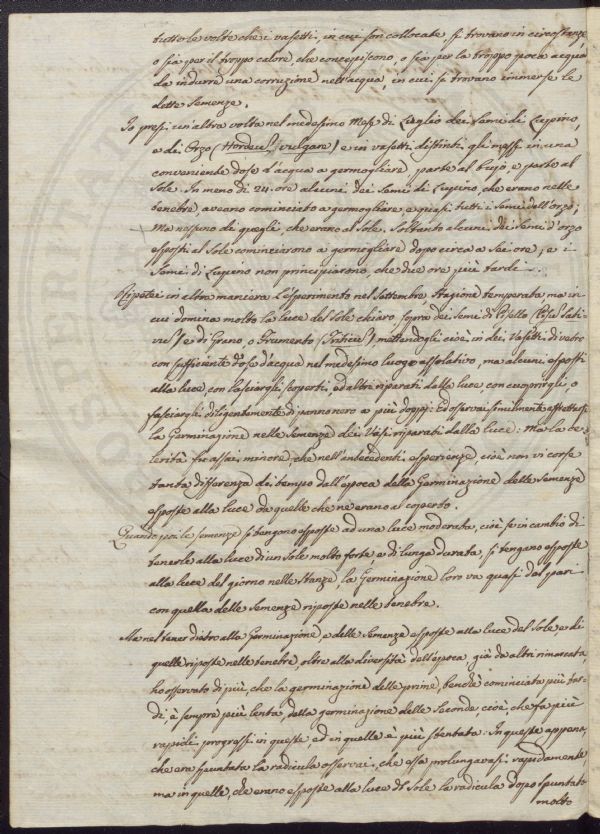 tutte le volte che i vasetti, in cui son collocate si trovano in circostanze
o sia per il troppo calore, che concepiscono, o sia per la troppo poca acqua
da indurre una corruzione nell'acqua, in cui si trovano immerse le
dette Semenze.
Io presi un'altra volta nel medesimo Mese di Luglio dei Semi di Lupino,
e di Orzo (Hordeum vulgare) e in vasetti distinti gli messi in una
conveniente dose d'acqua a germogliare parte al bujo, e parte al
Sole. In meno di 24. ore alcuni dei Semi di Lupino, che erano nelle
tenebre, aveano cominciato a germogliare, e quasi tutti i Semi dell'orzo;
Ma nessuno di quegli, che erano al Sole. Soltanto alcuni dei Semi d'orzo
esposti al Sole cominciarono a germogliare dopo circa a sei ore, e i
Semi di Lupino non principiarono, che due ore più tardi.
Ripetei in altra maniera l'esperimento nel Settembre Stagione temperata ma in
cui domina molto la luce del Sole chiaro sopra dei Semi di Pisello (Pisum Sati
vum) e di Grano, o Frumento (Triticum) mettendogli cioè in dei Vasetti di vetro
con sufficiente dose d'acqua nel medesimo luogo assolativo, ma alcuni esposti
alla luce, con lasciargli scoperti, ed altri riparati dalla luce con cuoprirgli, o
fasciargli diligentemente di panno nero a più doppj: Ed osservai similmente affrettarsi
la Germinazione nelle Semenze dei Vasi riparati dalla luce: Ma la ce-
lerità fu assai minore, che nell'antecedenti esperienze, cioè non vi corse
tanta differenza di tempo dall'epoca della Germinazione delle Semenze
esposte alla luce da quelle che ne erano al coperto.
Quando poi le semenze si tengano esposte ad una luce moderata, cioè se in cambio di
tenerle alla luce di un Sole molto forte, e di lunga durata, si tengano esposte
alla luce del giorno nelle Stanze, la Germinazione loro va quasi del pari
con quella delle Semenze riposte nelle tenebre.
Ma nel tener dietro alla Germinazione e delle Semenze esposte alla luce del Sole, e di
quelle riposte nelle tenebre, oltre alla diversità dell'epoca già da altri rimarcata,
ho osservato di più, che la germinazione delle prime, benchè cominciata più tar-
di, è sempre più lenta della germinazione delle Seconde, cioè, che fa più
rapidi progressi in queste, ed in quelle è più stentata: In queste appena,
che era spuntata la radicula osservai, che essa prolungavasi rapidamente,
ma in quelle, che erano esposte alla luce del Sole la radicula dopo spuntata
molto